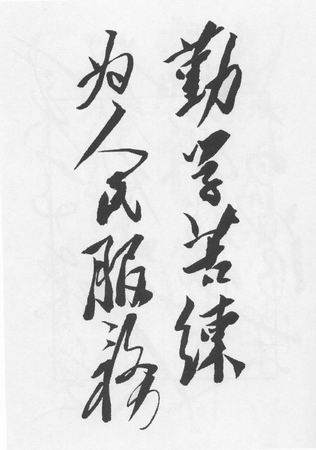 勤学苦练
为人民服务